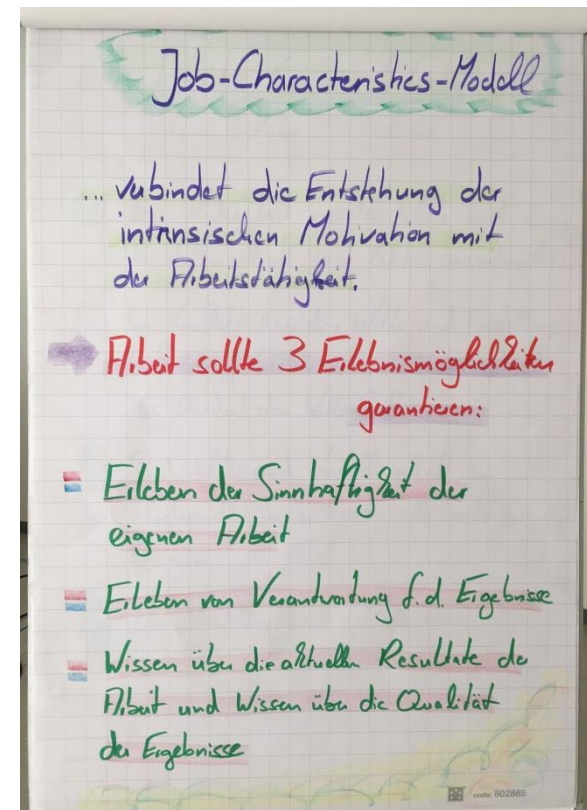 Job-Characteristics-Modell
... verbindet die Entstehung der
intrinsischen Motivation mit
der Arbeitstätigkeit.
Arbeit sollte 3 Erlebnismöglichkeiten
garantieren:
Erleben der Sinnhaftigkeit der
eigenen Arbeit
Erleben von Verantwortung f.d. Ergebnisse
Wissen über die aktuellen Resultate der
Arbeit und Wissen über die Qualität
der Ergebnisse
code: 802865